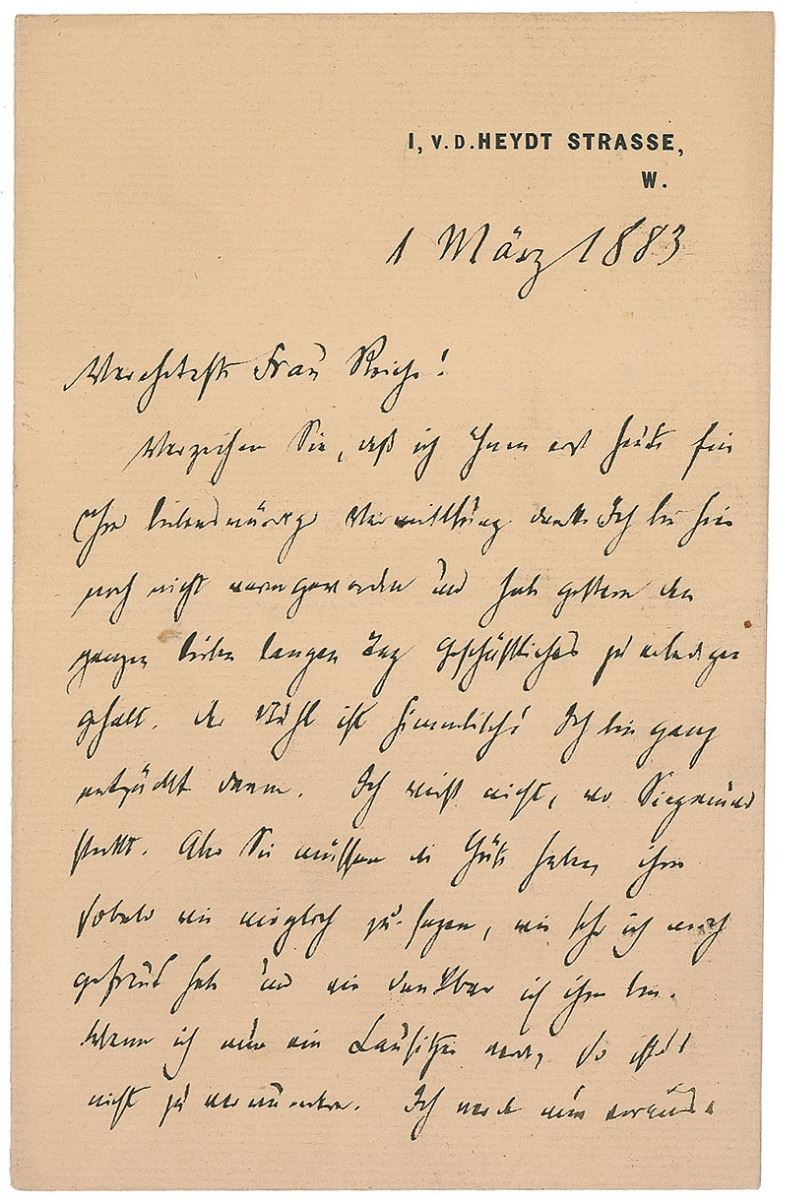 I, V. D. HEYDT STRASSE,
W.
1 März 1883
Verehrteste Frau Reiche!
Verzeihen Sie, daß ich Ihnen erst heute für
Ihre liebenswürdige Vermittlung danke. Ich bin hier
noch nicht warm geworden und habe gestern den
ganzen lieben langen Tag Geschäftliches zu erledigen
gehabt. Der Stuhl ist himmlisch! Ich bin ganz
entzückt davon. Ich weiß nicht, wo Siegmund
steckt. Also Sie müssen die Güte haben, ihm
sobald wie möglich zu sagen, wie sehr ich mich
gefreut habe und wie dankbar ich ihm bin.
Wenn ich nun ein Lausitzer werde, so ist's
nicht zu verwundern. Ich werde nun